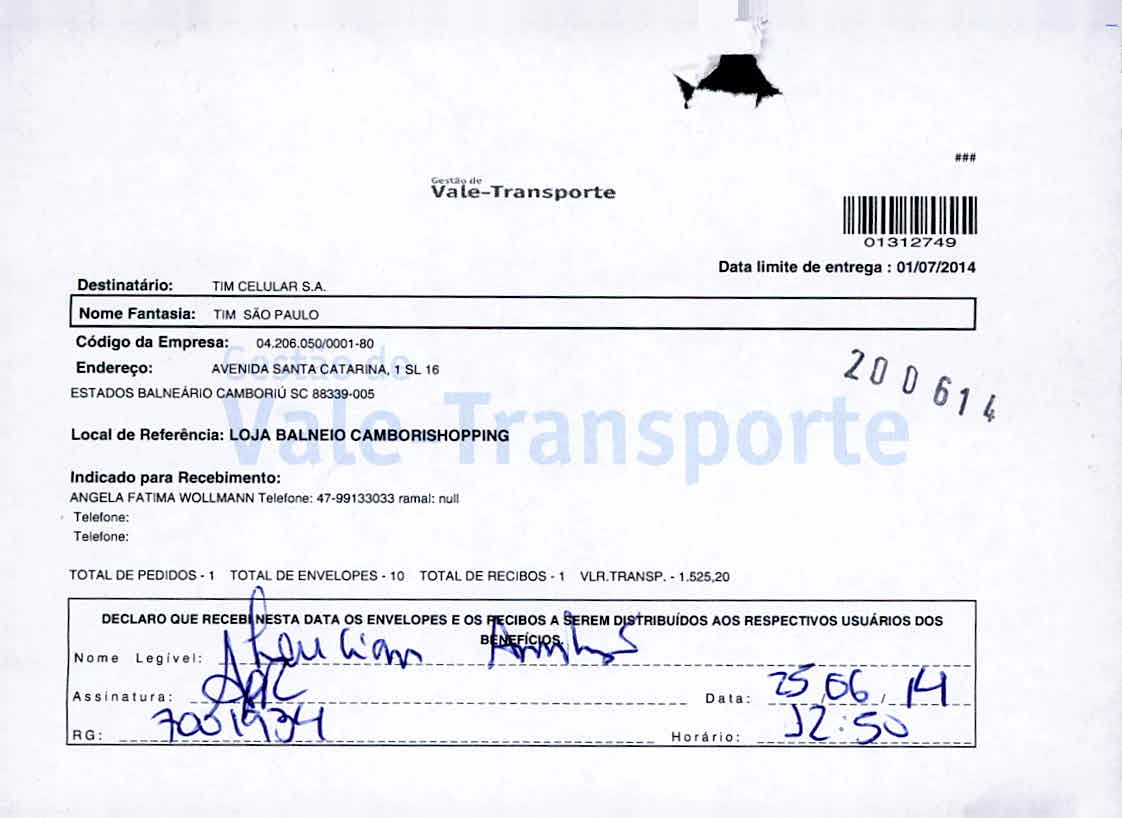 ###
Gestão de
Vale-Transporte
01312749
Data limite de entrega : 01/07/2014
Destinatário: TIM CELULAR S.A.
Nome Fantasia: TIM SÃO PAULO
Código da Empresa: 04.206.050/0001-80
Endereço: AVENIDA SANTA CATARINA, 1 SL 16
ESTADOS BALNEÁRIO CAMBORIÚ SC 88339-005
Gestão de
Vale-Transporte
200614
Local de Referência: LOJA BALNEIO CAMBORISHOPPING
Indicado para Recebimento:
ANGELA FATIMA WOLLMANN Telefone: 47-99133033 ramal: null
Telefone:
Telefone:
TOTAL DE PEDIDOS - 1 TOTAL DE ENVELOPES - 10 TOTAL DE RECIBOS - 1 VLR.TRANSP. - 1.525,20
DECLARO QUE RECEBI NESTA DATA OS ENVELOPES E OS RECIBOS A SEREM DISTRIBUÍDOS AOS RESPECTIVOS USUÁRIOS DOS
BENEFÍCIOS.
Nome Legível:
Assinatura: Data: 25/06/14
RG: Horário: 12:50